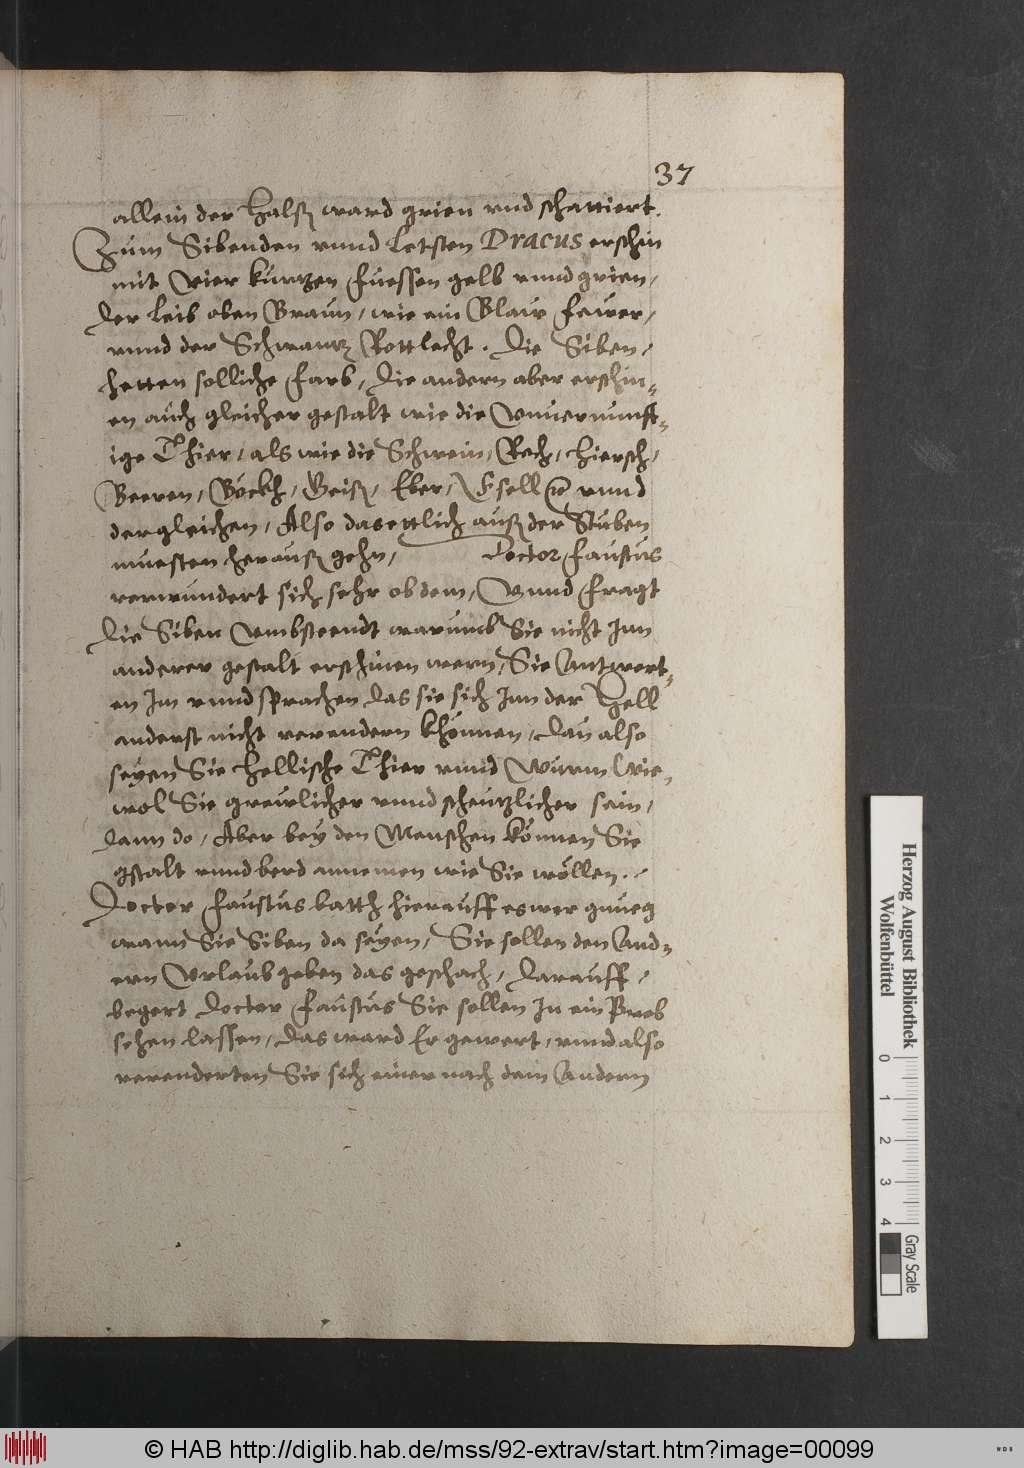 37
allein der Halß ward grien vnd schattiert.
Zum Sibenden vnnd letsten Dracus erschin
mit vier kurtzen fuessen gelb vnnd grien,
der leib oben Braun, wie ein Blaw fewer,
vnnd der Schwantz Rottlecht. Die Siben,
hetten solliche farb, die andern aber erschin¬
en auch gleicher gestalt wie die vnuernunfft¬
ige Thier, als wie die Schwein, Rech, Hirsch,
Beeren, Böckh, Geiß, Eber, Esell vnnd
dergleichen, Also das ettlich auß der Stuben
muesten herauß gehn, Doctor Faustus
verwundert sich sehr ob dem, Vnnd fragt
die Siben vmbsteendt warumb Sie nicht Jnn
anderer gestalt erschinen wern, Sie Antwort¬
en Jm vnnd sprachen das sie sich Jnn der Hell
anderst nicht verendern khönnen, dan also
seyen Sie hellische Thier vnnd Wurm Wie¬
wol Sie grewlicher vnnd scheutzlicher sein,
dann do, Aber bey den Menschen können Sie
gstalt vnnd berd annemen wie Sie wöllen.
Doctor Faustus batth hierauff es wer gnueg
wann Sie Siben da seyen, Sie sollen den And¬
ern Vrlaub geben das geschach, darauff,
begert Doctor Faustus Sie sollen Jn ein Prob
sehen lassen, das ward Er gewert, vnnd also
verenderten Sie sich einer nach dem Andern
Herzog August Bibliothek
Wolfenbüttel
0 1 2 3 4
Gray Scale
© HAB http://diglib.hab.de/mss/92-extrav/start.htm?image=00099
WDB